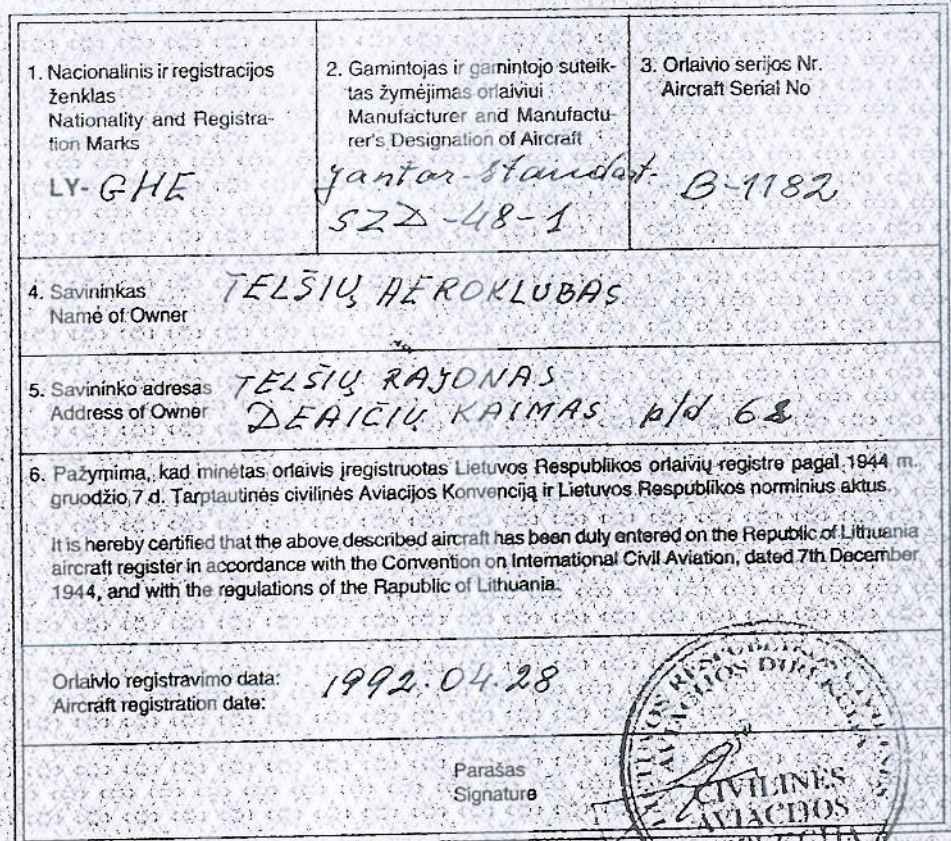 1. Nacionalinis ir registracijos
ženklas
Nationality and Registra-
tion Marks
LY- GHE
2. Gamintojas ir gamintojo suteik-
tas žymėjimas orlaiviui
Manufacturer and Manufactu-
rer's Designation of Aircraft
Jantar-Standart-
SZD-48-1
3. Orlaivio serijos Nr.
Aircraft Serial No
B-1182
4. Savininkas
Name of Owner
TELŠIŲ AEROKLUBAS
5. Savininko adresas
Address of Owner
TELŠIŲ RAJONAS
KAIMAS p/d
6. Pažymima, kad minėtas orlaivis įregistruotas Lietuvos Respublikos orlaivių registre pagal 1944 m.
gruodžio 7 d. Tarptautinės civilinės Aviacijos Konvenciją ir Lietuvos Respublikos norminius aktus.
It is hereby certified that the above described aircraft has been duly entered on the Republic of Lithuania
aircraft register in accordance with the Convention on International Civil Aviation, dated 7th December
1944, and with the regulations of the Rapublic of Lithuania.
Orlaivio registravimo data:
Aircraft registration date:
1992.04.28
Parašas
Signature
CIVILINĖS
AVIACIJOS